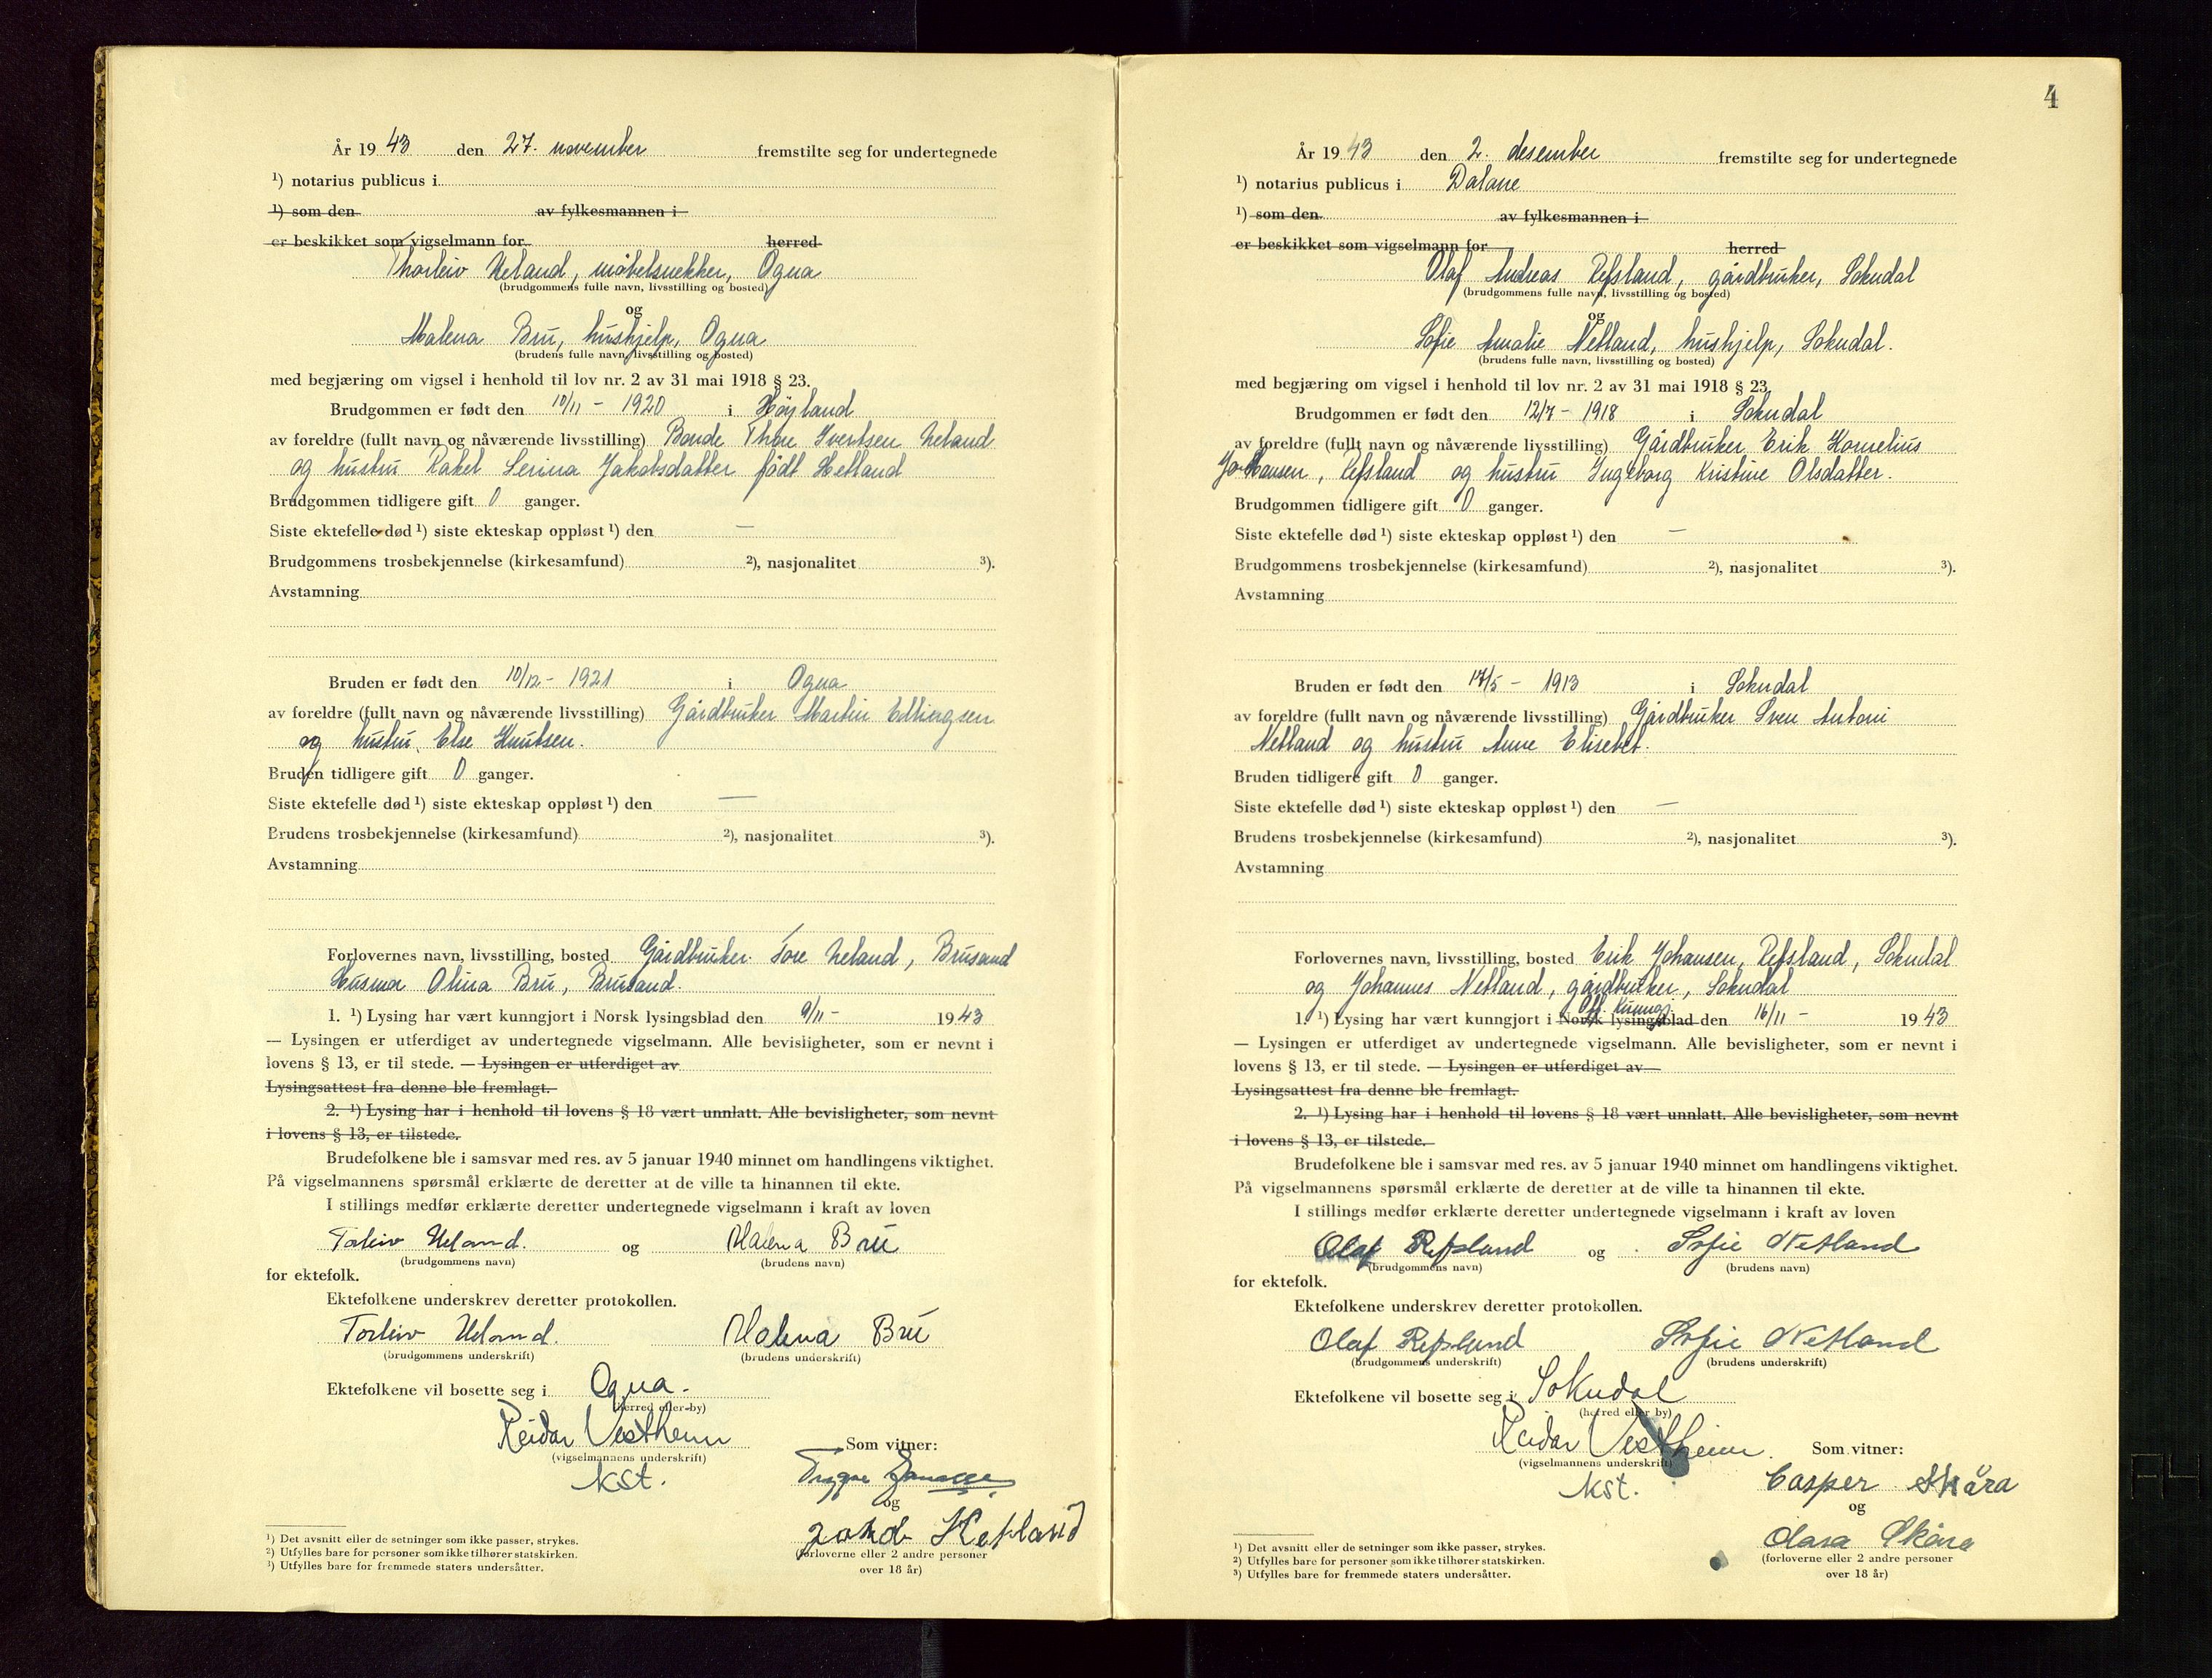 År 1943 den 27. november fremstilte seg for undertegnede
¹) notarius publicus i
¹) som den av fylkesmannen i
er beskikket som vigselmann for herred
Thorleiv Ueland, møbelsnekker, Ogna
(brudgommens fulle navn, livsstilling og bosted)
og
Malena Bru, hushjelp, Ogna
(brudens fulle navn, livsstilling og bosted)
med begjæring om vigsel i henhold til lov nr. 2 av 31 mai 1918 § 23.
Brudgommen er født den 10/11 - 1920 i Høyland
av foreldre (fullt navn og nåværende livsstilling) Bonde Thore Ivertsen Ueland
og hustru Rakel Serina Jakobsdatter født Hetland
Brudgommen tidligere gift 0 ganger.
Siste ektefelle død ¹) siste ekteskap oppløst ¹) den —
Brudgommens trosbekjennelse (kirkesamfund) ²), nasjonalitet ³).
Avstamning
Bruden er født den 10/12 - 1921 i Ogna
av foreldre (fullt navn og nåværende livsstilling) Gårdbruker Martin Ellingsen
og hustru Else Knutsen.
Bruden tidligere gift 0 ganger.
Siste ektefelle død ¹) siste ekteskap oppløst ¹) den —
Brudens trosbekjennelse (kirkesamfund) ²), nasjonalitet ³).
Avstamning
Forlovernes navn, livsstilling, bosted Gårdbruker Tore Ueland, Brusand
Husmor Olina Bru, Brusand.
1. ¹) Lysing har vært kunngjort i Norsk lysingsblad den 9/11 - 1943
— Lysingen er utferdiget av undertegnede vigselmann. Alle bevisligheter, som er nevnt i
lovens § 13, er til stede. — Lysingen er utferdiget av
Lysingsattest fra denne ble fremlagt.
2. ¹) Lysing har i henhold til lovens § 18 vært unnlatt. Alle bevisligheter, som nevnt
i lovens § 13, er tilstede.
Brudefolkene ble i samsvar med res. av 5 januar 1940 minnet om handlingens viktighet.
På vigselmannens spørsmål erklærte de deretter at de ville ta hinannen til ekte.
I stillings medfør erklærte deretter undertegnede vigselmann i kraft av loven
Torleiv Ueland. og Malena Bru
(brudgommens navn) (brudens navn)
for ektefolk.
Ektefolkene underskrev deretter protokollen.
Torleiv Ueland. Malena Bru
(brudgommens underskrift) (brudens underskrift)
Ektefolkene vil bosette seg i Ogna.
(herred eller by)
Reidar Vestheim Som vitner:
(vigselmannens underskrift)
kst. Trygve
og
Hetland
(forloverne eller 2 andre personer
over 18 år)
¹) Det avsnitt eller de setninger som ikke passer, strykes.
²) Utfylles bare for personer som ikke tilhører statskirken.
³) Utfylles bare for fremmede staters undersåtter.
4
År 1943 den 2. desember fremstilte seg for undertegnede
¹) notarius publicus i Dalane
¹) som den av fylkesmannen i
er beskikket som vigselmann for herred
Olaf Andreas Refsland, gårdbruker, Sokndal
(brudgommens fulle navn, livsstilling og bosted)
og
Sofie Amalie Netland, hushjelp, Sokndal.
(brudens fulle navn, livsstilling og bosted)
med begjæring om vigsel i henhold til lov nr. 2 av 31 mai 1918 § 23.
Brudgommen er født den 12/7 - 1918 i Sokndal
av foreldre (fullt navn og nåværende livsstilling) Gårdbruker Erik Kornelius
Johansen, Refsland og hustru Ingeborg Kristine Olsdatter.
Brudgommen tidligere gift 0 ganger.
Siste ektefelle død ¹) siste ekteskap oppløst ¹) den —
Brudgommens trosbekjennelse (kirkesamfund) ²), nasjonalitet ³).
Avstamning
Bruden er født den 17/5 - 1913 i Sokndal
av foreldre (fullt navn og nåværende livsstilling) Gårdbruker Sven Antoni
Netland og hustru Anne Elisebet.
Bruden tidligere gift 0 ganger.
Siste ektefelle død ¹) siste ekteskap oppløst ¹) den —
Brudens trosbekjennelse (kirkesamfund) ²), nasjonalitet ³).
Avstamning
Forlovernes navn, livsstilling, bosted Erik Johansen, Refsland, Sokndal
og Johannes Netland, gårdbruker, Sokndal
Off. kunngj.
1. ¹) Lysing har vært kunngjort i Norsk lysingsblad den 16/11 - 1943
— Lysingen er utferdiget av undertegnede vigselmann. Alle bevisligheter, som er nevnt i
lovens § 13, er til stede. — Lysingen er utferdiget av
Lysingsattest fra denne ble fremlagt.
2. ¹) Lysing har i henhold til lovens § 18 vært unnlatt. Alle bevisligheter, som nevnt
i lovens § 13, er tilstede.
Brudefolkene ble i samsvar med res. av 5 januar 1940 minnet om handlingens viktighet.
På vigselmannens spørsmål erklærte de deretter at de ville ta hinannen til ekte.
I stillings medfør erklærte deretter undertegnede vigselmann i kraft av loven
Olaf Refsland og Sofie Netland
(brudgommens navn) (brudens navn)
for ektefolk.
Ektefolkene underskrev deretter protokollen.
Olaf Refsland Sofie Netland
(brudgommens underskrift) (brudens underskrift)
Ektefolkene vil bosette seg i Sokndal
(herred eller by)
Reidar Vestheim. Som vitner:
(vigselmannens underskrift)
kst. Casper Skåra
og
Clara Skåra
(forloverne eller 2 andre personer
over 18 år)
¹) Det avsnitt eller de setninger som ikke passer, strykes.
²) Utfylles bare for personer som ikke tilhører statskirken.
³) Utfylles bare for fremmede staters undersåtter.